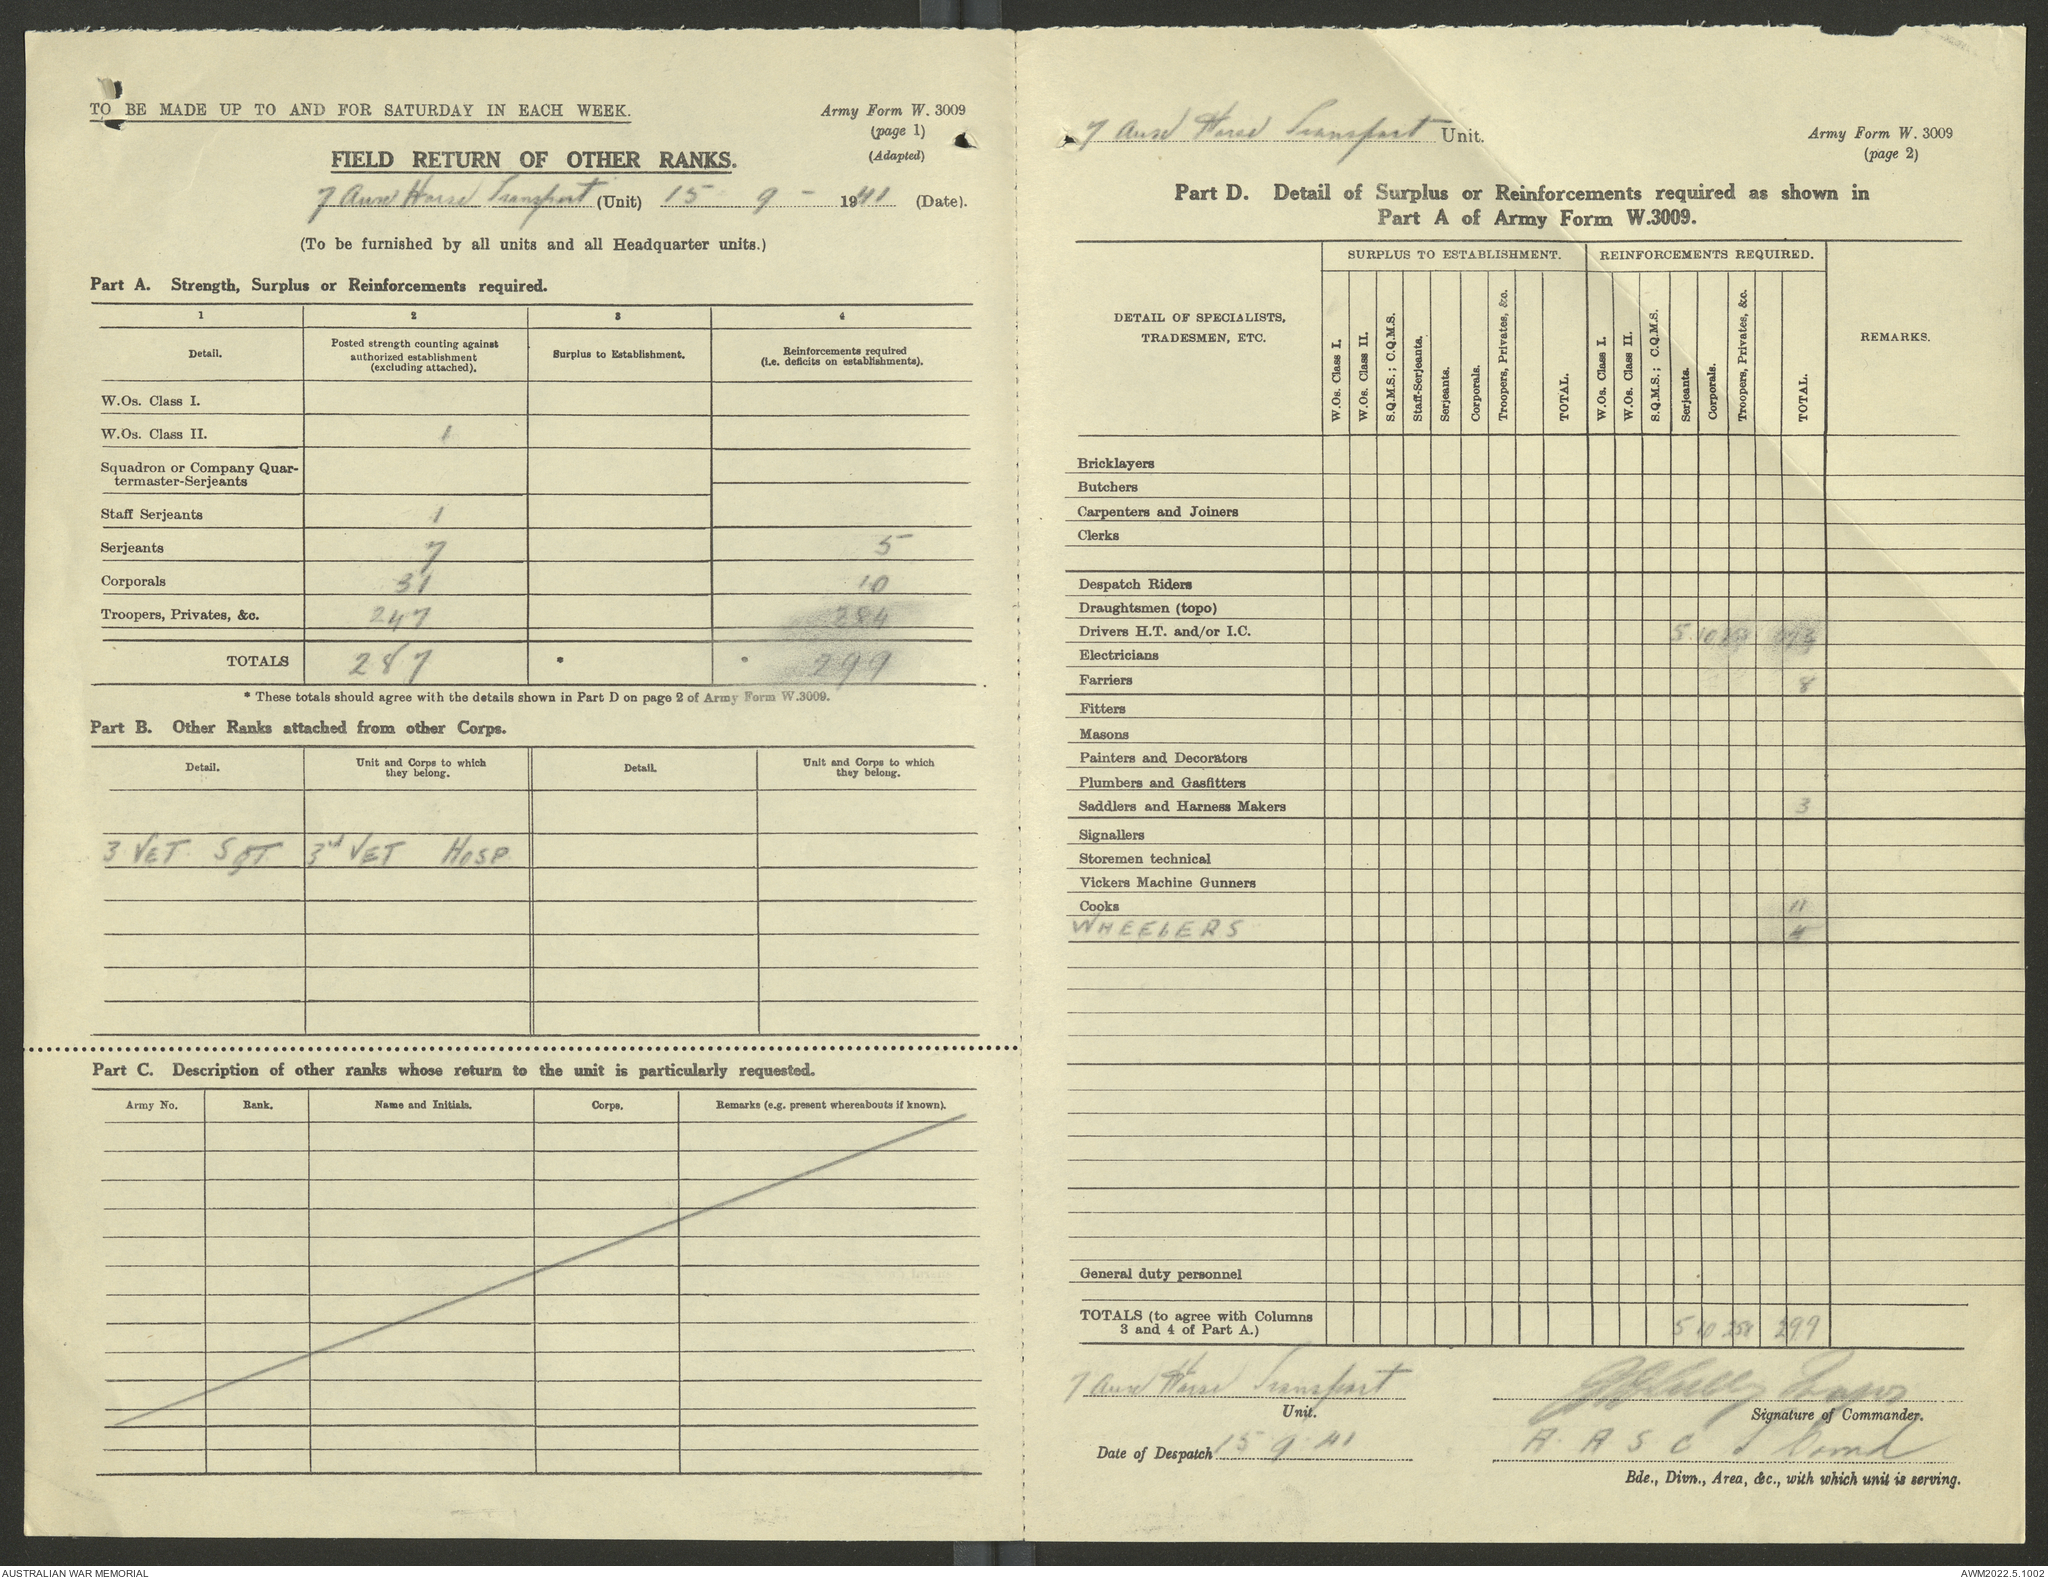 TO BE MADE UP TO AND FOR SATURDAY IN EACH WEEK.
Army Form W. 3009
(page 1)
(Adapted)
FIELD RETURN OF OTHER RANKS.
7 Aust Horse Transport (Unit) 15 - 9 - 1941 (Date).
(To be furnished by all units and all Headquarter units.)
Part A. Strength, Surplus or Reinforcements required.
1 2 3 4
Detail. Posted strength counting against authorized establishment (excluding attached). Surplus to Establishment. Reinforcements required (i.e. deficits on establishments).
W.Os. Class I.
W.Os. Class II. 1
Squadron or Company Quar-
termaster-Serjeants
Staff Serjeants 1
Serjeants 7 5
Corporals 31 10
Troopers, Privates, &c. 247 284
TOTALS 287 * * 299
* These totals should agree with the details shown in Part D on page 2 of Army Form W.3009.
Part B. Other Ranks attached from other Corps.
Detail. Unit and Corps to which they belong. Detail. Unit and Corps to which they belong.
3 VET SGT 3rd VET HOSP.
Part C. Description of other ranks whose return to the unit is particularly requested.
Army No. Rank. Name and Initials. Corps. Remarks (e.g. present whereabouts if known).
7 Aust Horse Transport Unit.
Army Form W. 3009
(page 2)
Part D. Detail of Surplus or Reinforcements required as shown in
Part A of Army Form W.3009.
SURPLUS TO ESTABLISHMENT. REINFORCEMENTS REQUIRED.
DETAIL OF SPECIALISTS,
TRADESMEN, ETC.
W.Os. Class I. W.Os. Class II. S.Q.M.S.; C.Q.M.S. Staff-Serjeants. Serjeants. Corporals. Troopers, Privates, &c. TOTAL. W.Os. Class I. W.Os. Class II. S.Q.M.S.; C.Q.M.S. Serjeants. Corporals. Troopers, Privates, &c. TOTAL.
REMARKS.
Bricklayers
Butchers
Carpenters and Joiners
Clerks
Despatch Riders
Draughtsmen (topo)
Drivers H.T. and/or I.C. 5 10 273
Electricians
Farriers 8
Fitters
Masons
Painters and Decorators
Plumbers and Gasfitters
Saddlers and Harness Makers 3
Signallers
Storemen technical
Vickers Machine Gunners
Cooks 11
WHEELERS 4
General duty personnel
TOTALS (to agree with Columns
3 and 4 of Part A.) 5 10 258 299
7 Aust Horse Transport
Unit.
Signature of Commander.
Date of Despatch 15 9 41
A. A S C
Bde., Divn., Area, &c., with which unit is serving.
AUSTRALIAN WAR MEMORIAL
AWM2022.5.1002